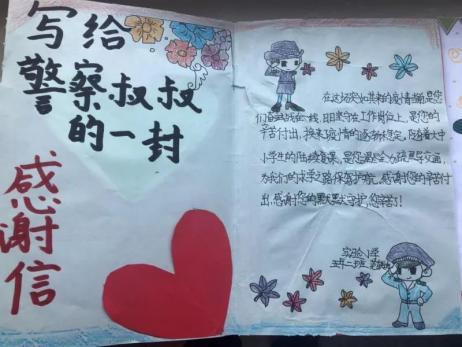 写给
警察叔叔
的一封
感谢信
在这场突如其来的疫情当前是您
们奋战在一线,日日夜夜守在工作岗位上,是您的
辛苦付出,换来疫情的逐渐稳定,随着大
中小学生的陆续复课,是您
为我们的求学之路保驾护航,感谢您的辛苦付
出,感谢您的默默守护,您辛苦了!
实验小学
五年二班